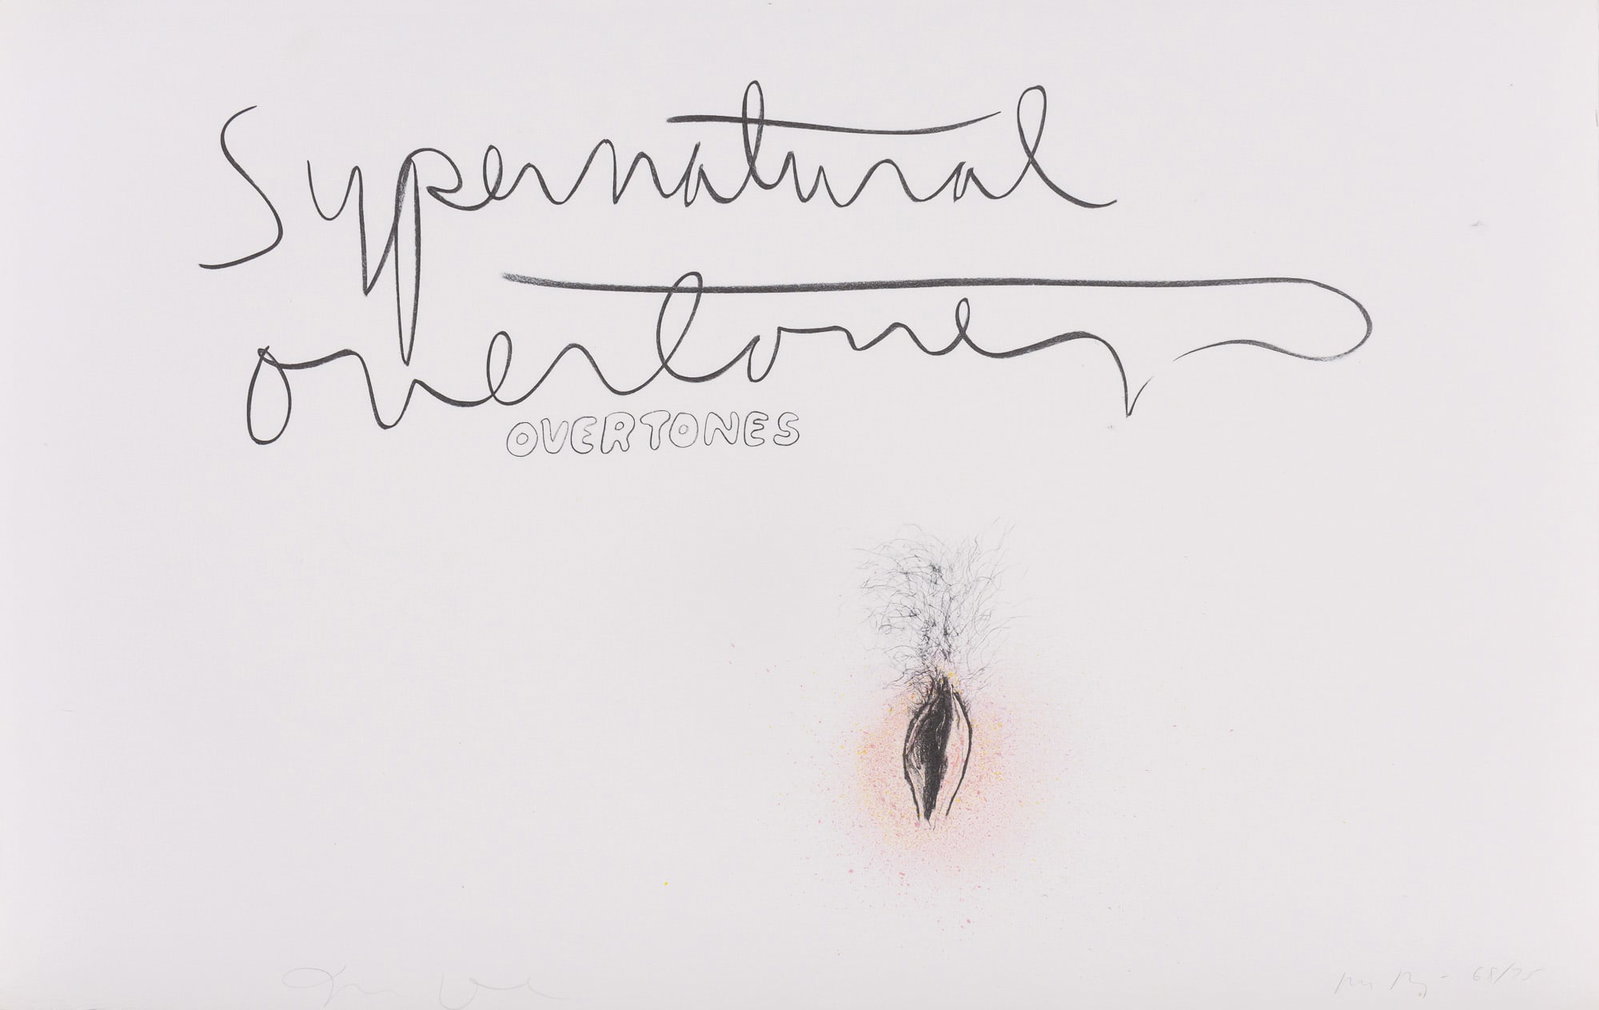 Supernatural
overtones
OVERTONES
68/75